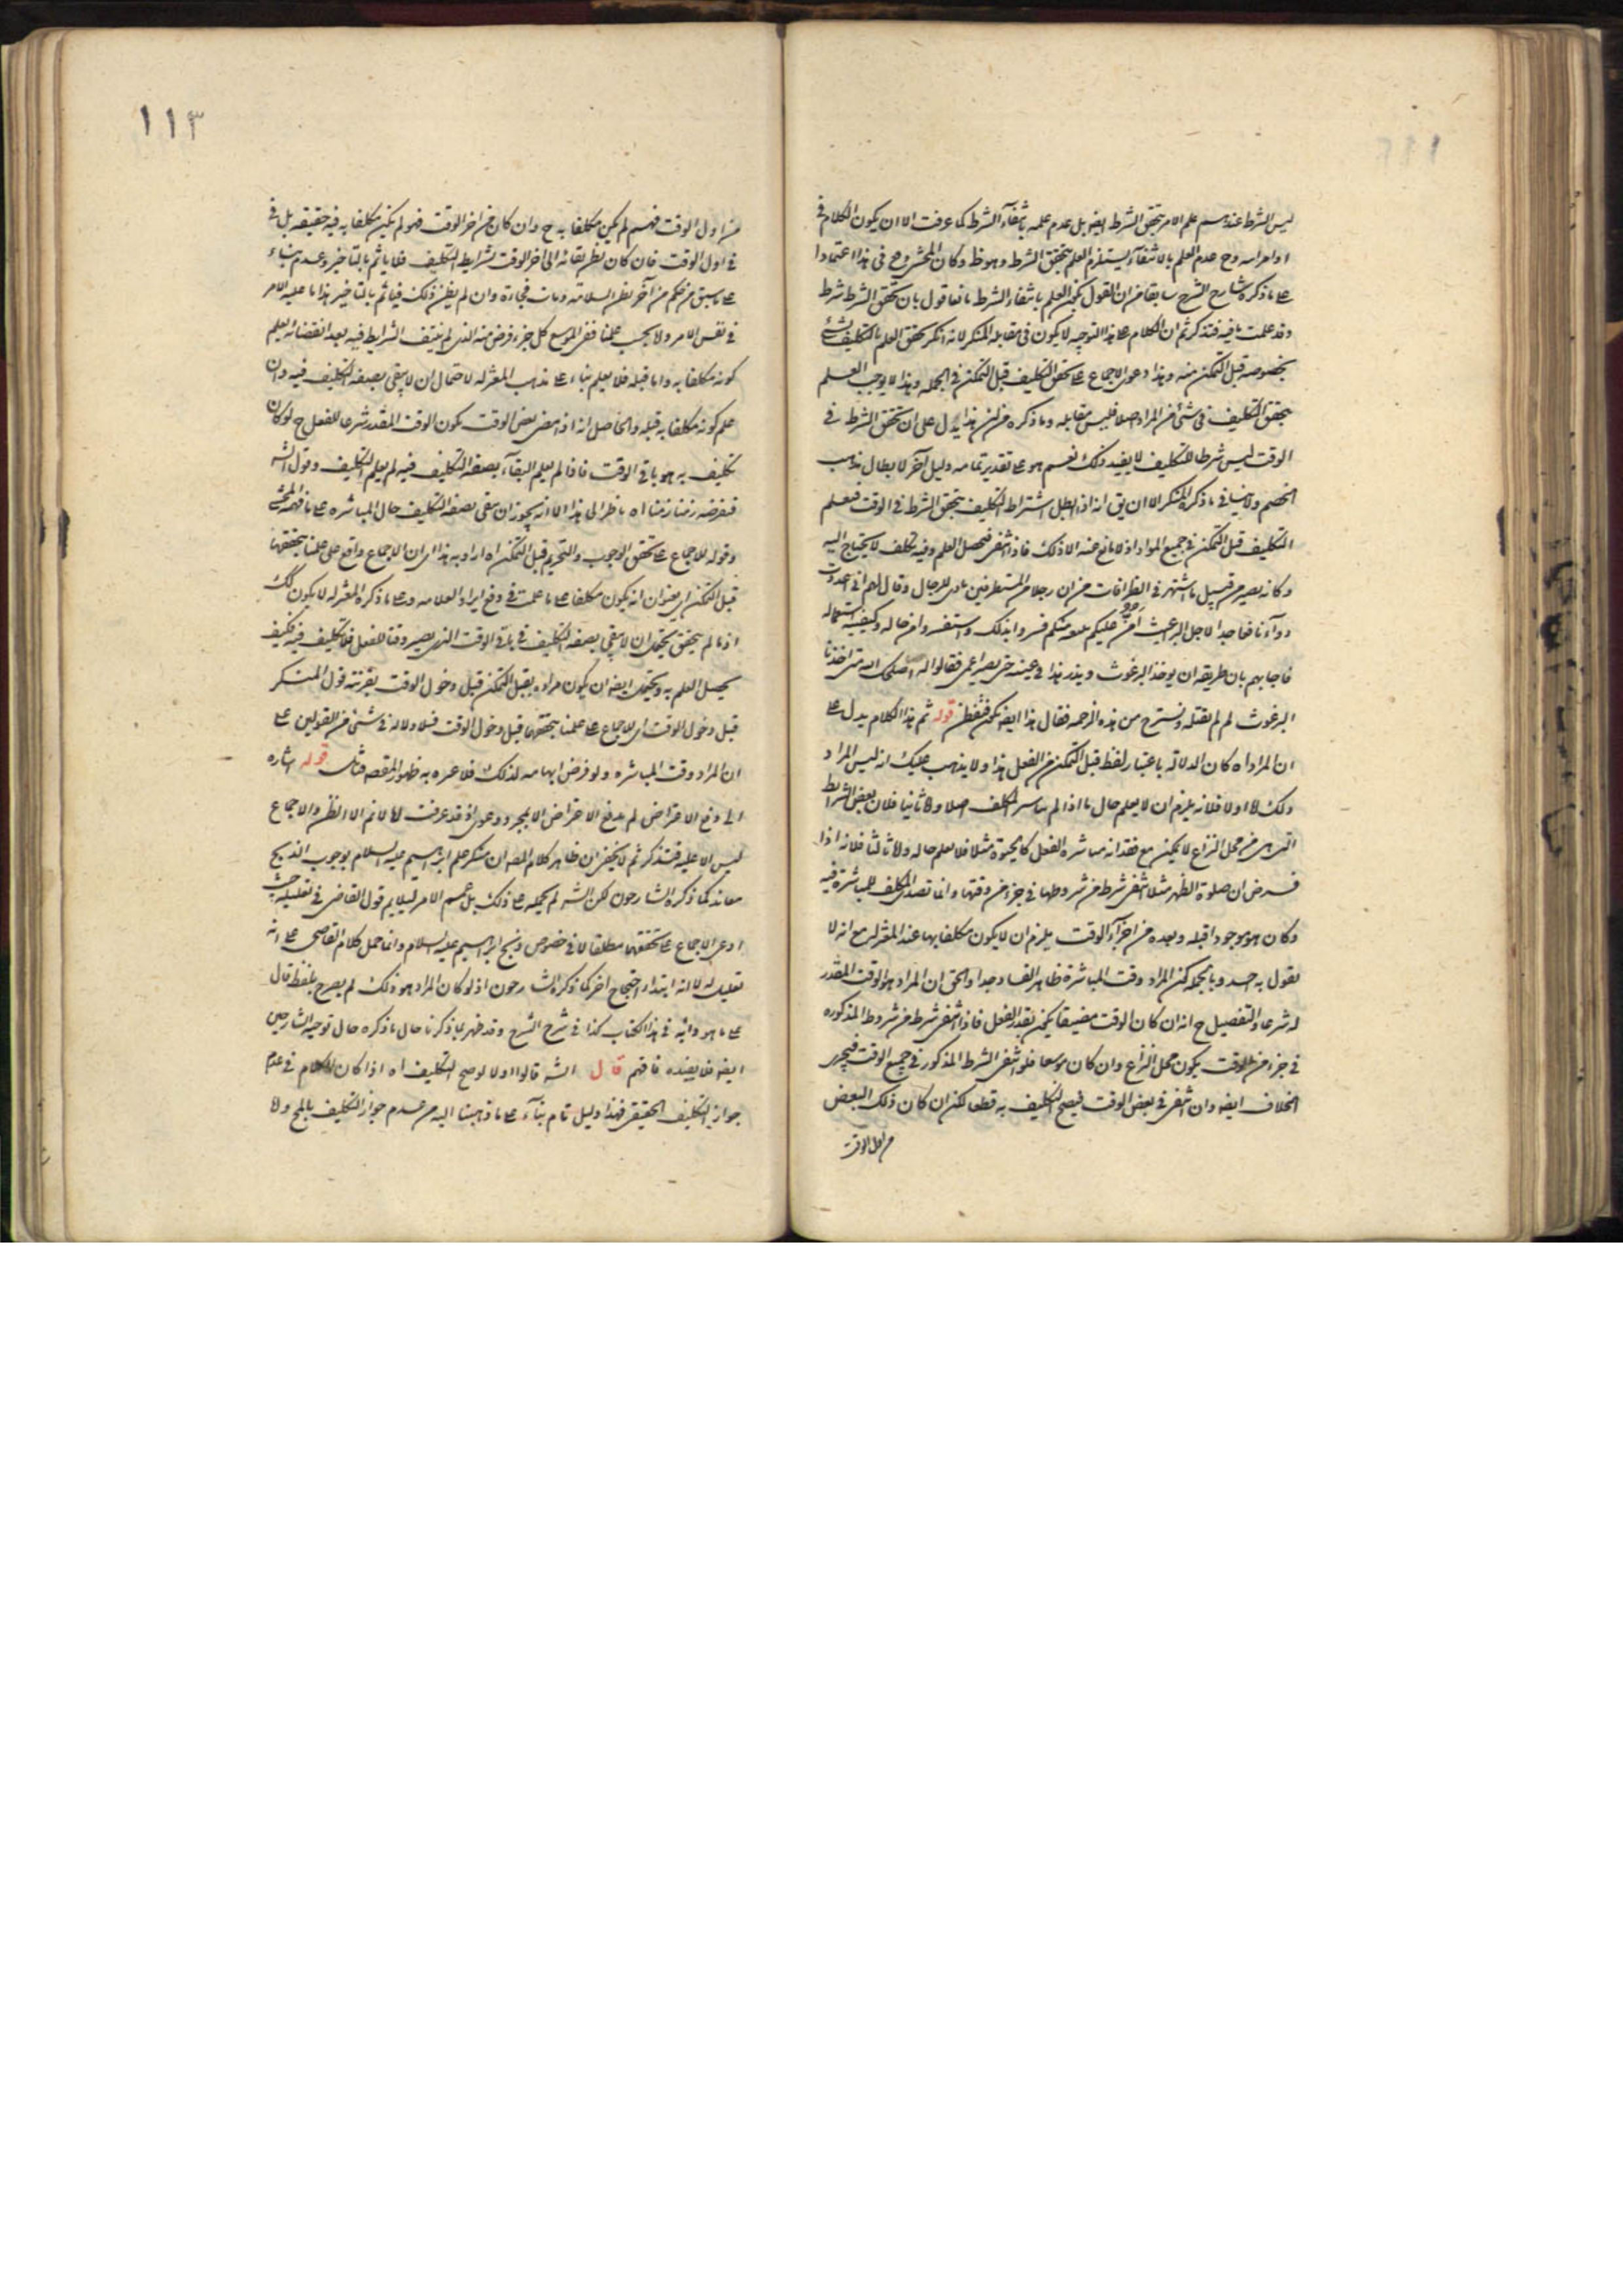 ليس الشرط عندهم علم الامر بتحقق الشرط ايضا بل عدم علمه بانتفاء الشرط كما عرفت الا ان يكون الكلام في
اوامر الله وح عدم العلم بالانتفاء يستلزم العلم بتحقق الشرط وهو ظ وكان المحشي وح في هذا اعتمادا
على ما ذكره شارح الشرح سابقا من ان القول بكون العلم بانتفاء الشرط مانعا قول بان تحقق الشرط شرط
وقد علمت ما فيه فتذكر ثم ان الكلام على هذا التوجيه لا يكون في مقابله المنكر لانه انكر تحقق العلم بالتكليف بشئ
بخصوصه قبل التمكن منه وهذا دعوى الاجماع على تحقق التكليف قبل التمكن في الجمله وهذا لا يوجب العلم
بتحقق التكليف في شئ من المواد اصلا فليس مقابله وما ذكره من ان هذا يدل على ان تحقق الشرط في
الوقت ليس شرطا للتكليف لا يفيد ذلك نعم هو على تقدير تمامه دليل آخر لابطال مذهب
الخصم ولا ينافي ما ذكره المنكر الا ان يق انه اذا بطل اشتراط التكليف بتحقق الشرط في الوقت فعلم
التكليف قبل التمكن في جميع المواد اذ لا مانع عنه الا ذلك فاذا انتفى فيحصل العلم وفيه تكلف لا يحتاج اليه
وكانه يصير من قبيل ما اشتهر في الظرافات من ان رجلا من المتظرفين نادى للرجال وقال لهم اني اعددت
دواء نافعا جدا لاجل البراغيث
فاجابهم بان طريقه ان يوخذ البرغوث ويذر هذا في عينه حتى يصير اعمى فقالوا له اصلحك الله متى اخذنا
البرغوث لم لم نقتله ونستريح من هذه الزحمه فقال هذا ايضا ممكن فتفطن قوله ثم هذا الكلام يدل على
ان المراد اه كان الدلاله باعتبار لفظ قبل التمكن من الفعل هذا ولا يذهب عليك انه ليس المراد
ذلك اما اولا فلانه يلزم ان لا يعلم حال ما اذا لم يباشر المكلف اصلا واما ثانيا فلان بعض الشرايط
التي هي من محل النزاع لا يمكن مع فقدانه مباشره الفعل كالحيوة مثلا فلا يعلم حاله واما ثالثا فلانه اذا
فرض ان صلوة الظهر مثلا انتفى شرط من شروطها في جزء من وقتها وانما تصدى المكلف للمباشرة فيه
وكان هو موجودا قبله وبعده من اجزاء الوقت يلزم ان لا يكون مكلفا بها عند المعتزله مع انه لا
يقول به احد وبالجمله كون المراد وقت المباشرة ظاهر الفساد جدا والحق ان المراد هو الوقت المقدر
له شرعا والتفصيل ح انه ان كان الوقت مضيقا يمكن بقدر الفعل فاذا انتفى شرط من شروط المذكوره
في جزء من الوقت يكون محل النزاع وان كان موسعا فلو انتفى الشرط المذكور في جميع الوقت فيجرى
الخلاف ايضا وان انتفى في بعض الوقت فيصح التكليف به قطعا لكن ان كان ذلك البعض
من اول الوقت
١١٣
من اول الوقت فهم لم يكن مكلفا به ح وان كان من اخر الوقت فهو لم يكن مكلفا به فيه حقيقه بل في
في اول الوقت فان كان يظن بقائه الى اخر الوقت بشرايط التكليف فلا ياثم بالتاخير وعدم بناء
على ما سبق من حكم من آخر بظن السلامه ومات فجاءة وان لم يظن ذلك فياثم بالتاخير هذا ما عليه الامر
في نفس الامر ولا بحسب علمنا ففي الموسع كل جزء فرض منه الذي لم ينتف الشرايط فيه بعد انقضائه يعلم
كونه مكلفا به واما قبله فلا يعلم بناء على مذهب المعتزله لاحتمال ان لا يبقى بصفه التكليف فيه وان
علم كونه مكلفا به قبله والحاصل انه اذا مضى بعض الوقت يكون الوقت المقدر شرعا للفعل ح لو كان
تكليف به هو باقي الوقت فاذا لم يعلم البقاء بصفه التكليف فيه لم يعلم التكليف وقول الش
فنفرضه زمنا زمنا اه ناظر الى هذا الا انه يجوز ان يبقى بصفه التكليف حال المباشره على ما فهمه المحشي
وقوله للاجماع على تحقق الوجوب والتحريم قبل التمكن اه اراد به هذا اي ان الاجماع واقع على علمنا بتحققهما
قبل التمكن اي بعنوان انه يكون مكلفا على ما علمت في دفع ايراد العلامه وعلى ما ذكره المعتزله لا يكون كك
اذ ما لم يتحقق يحتمل ان لا يبقى بصفه التكليف في باقي الوقت الذي يصير وقتا للفعل فلا تكليف فيه فكيف
يحصل العلم به ويحتمل ايضا ان يكون مراده بقبل التمكن قبل دخول الوقت بقرينه قول المنكر
قبل دخول الوقت اي للاجماع على علمنا بتحققهما قبل دخول الوقت فلا دلاله في شئ من القولين على
ان المراد وقت المباشره ولو فرض ابهامه لذلك فلا عبره به لظهور المقصه فتامل قوله اشاره
الى دفع الاعتراض لم يندفع الاعتراض الا بمجرد دعوى اذ قد عرفت انا لا نم الا الظن والاجماع
ليس الا عليه فتذكر ثم لا يخفى ان ظاهر كلام المصه ان منكر علم ابراهيم عليه السلام بوجوب الذبح
معاند كما ذكره الشارحون لكن الش لم يحمله على ذلك بل عمم الامر ليلايم قول القاضي في تعليله حيث
ادعى الاجماع على تحققهما مطلقا لا في خصوص ذبح ابراهيم عليه السلام وانما حمل كلام القاضي على انه
تعليل له لا انه ابتداء احتجاج اخر كما ذكره الشارحون اذ لو كان المراد هو ذلك لم يصرح بلفظ قال
على ما هو دابه في هذا الكتاب كذا في شرح الشرح وقد ظهر بما ذكرنا حال ما ذكره حال توجيه الشارحين
ايضا فلا يفيده فافهم قال الش قالوا اولا لو صح التكليف اه اذا كان الكلام في عدم
جواز التكليف الحقيقي فهذا دليل تام بناء على ما ذهبنا اليه من عدم جواز التكليف بالمح ولا